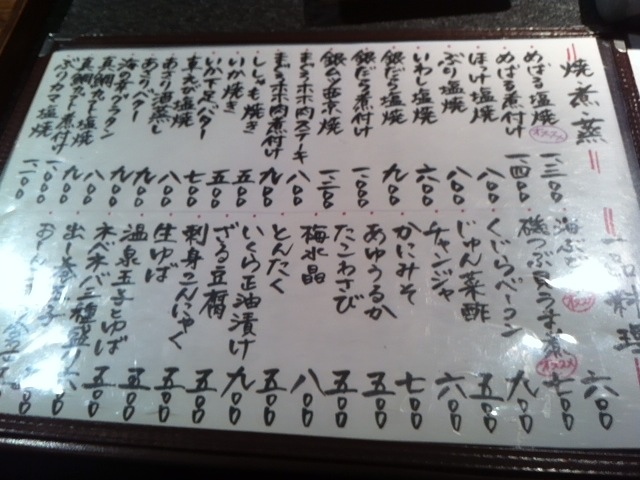 焼煮・蒸
めばる塩焼 オススメ 一、三〇〇
めばる煮付け 一、四〇〇
ほっけ塩焼 八〇〇
ぶり塩焼 八〇〇
いわし塩焼 六〇〇
銀だら塩焼 九〇〇
銀だら煮付け 一、〇〇〇
銀ムツ西京焼 一、二〇〇
まぐろホホ肉ステーキ 八〇〇
まぐろホホ肉煮付け 九〇〇
ししゃも焼き 五〇〇
いか焼き 五〇〇
いか下足バター
車えび塩焼
あさり酒蒸し
あさりバター 九〇〇
海の幸グラタン
真鯛かぶと塩焼
真鯛かぶと煮付
ぶりカマ塩焼
一品料理
海ぶ オススメ 六〇〇
磯つぶ貝うま煮 オススメ 七〇〇
くじらベーコン 九〇〇
じゅん菜酢 五〇〇
チャンジャ 六〇〇
かにみそ 七〇〇
あゆうるか 五〇〇
たこわさび 五〇〇
梅水晶 八〇〇
とんたく 五〇〇
いくら正油漬け 九〇〇
ざる豆腐 五〇〇
刺身こんにゃく 五〇〇
生ゆば 五〇〇
温泉玉子とゆば 五〇〇
三種盛り
出し巻玉子